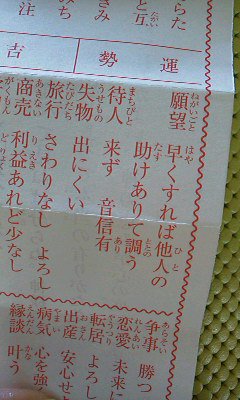 らた
と互
きみ
みち
注
運勢
吉
願望 早くすれば他人の
助けありて調う
待人 来ず 音信有
失物 出にくい
旅行 さわりなし よろし
商売 利益あれど少なし
争事 勝つ
恋愛 未来に
転居 よろし
出産 安心せ
病気 心を強
縁談 叶う